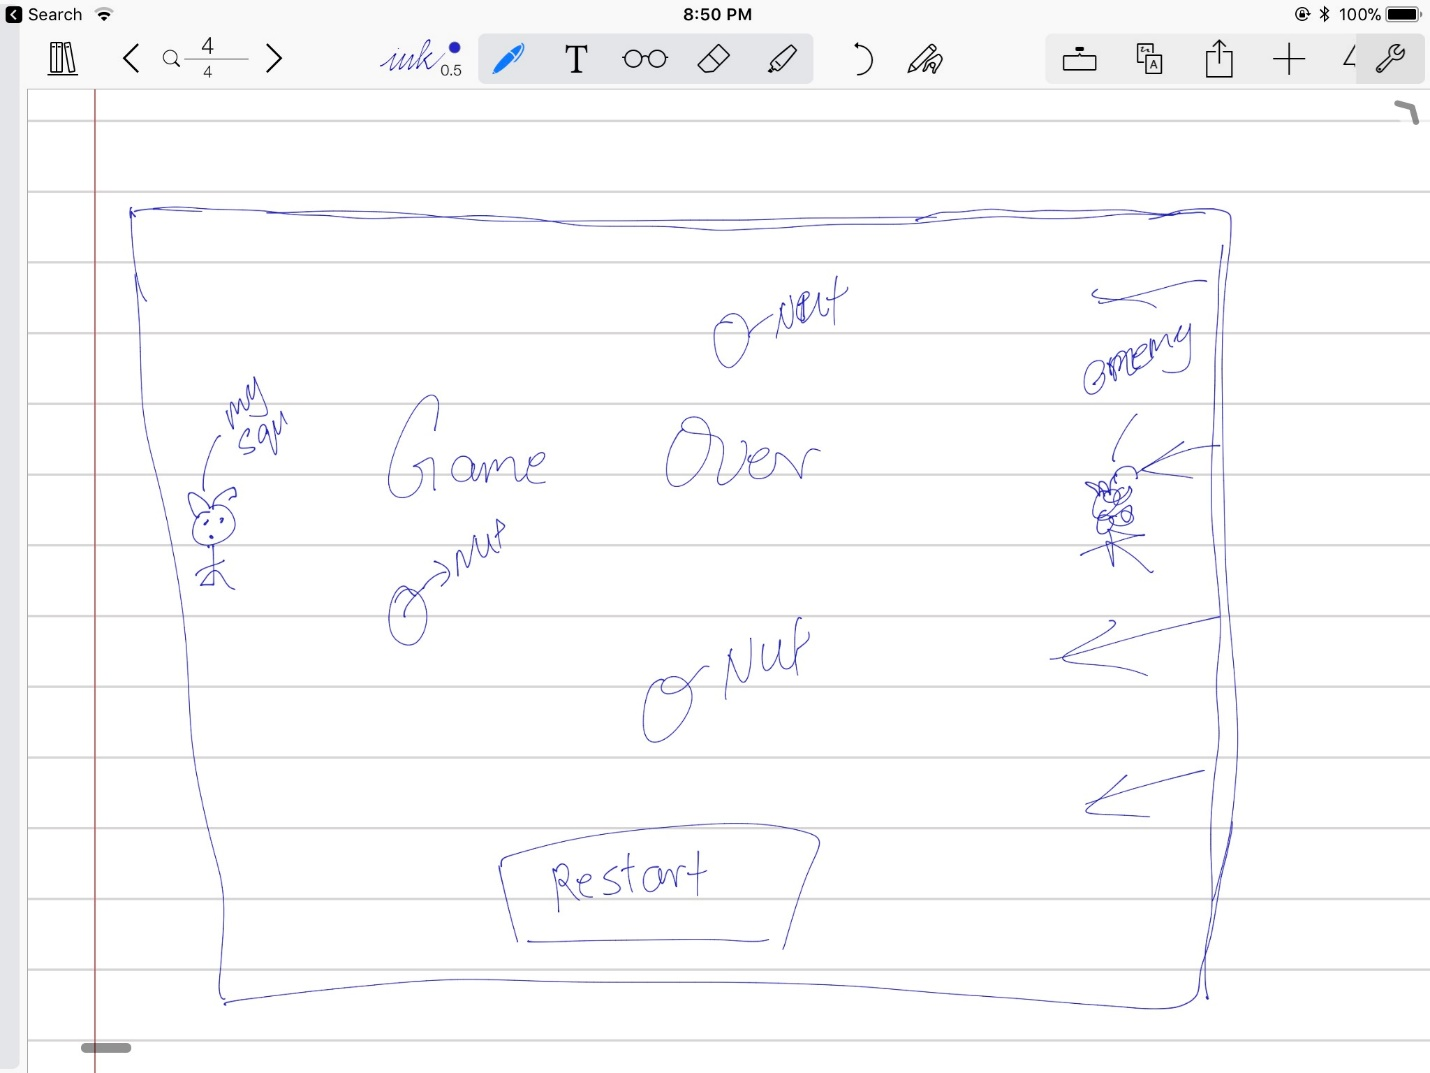 Search
8:50 PM
100%
4
4
ink
0.5
T
A
Nut
enemy
my
squ
Game Over
Nut
Nut
Restart